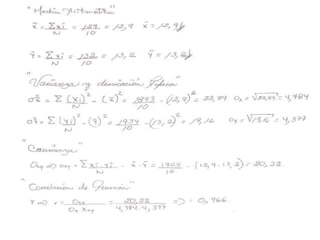 "Media Aritmética"
x̄ = Σxi / N = 129 / 10 = 12,9 x̄ = 12,9
ȳ = Σxi / N = 132 / 10 = 13,2 ȳ = 13,2
"Varianza y desviación Típica"
σx² = Σ (xi)² / N - (x̄)² = 1893 / 10 - (12,9)² = 22,89 σx = √22,89 = 4,784
σy² = Σ (yi)² / N - (ȳ)² = 1934 / 10 - (13,2)² = 19,16 σy = √19,16 = 4,377
"Covarianza"
σxy => σxy = Σxi·yi / N - x̄·ȳ = 1905 / 10 - (12,9 · 13,2) = 20,22
"Correlacion de Pearson"
r => r = σxy / σx · σy = 20,22 / 4,784 · 4,377 => = 0,966